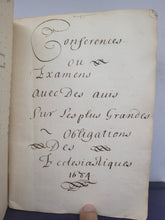 Conferences
ou
Examens
avec Des avis
Sur Les plus Grandes
Obligations
Des
Ecclesiastiques
1684